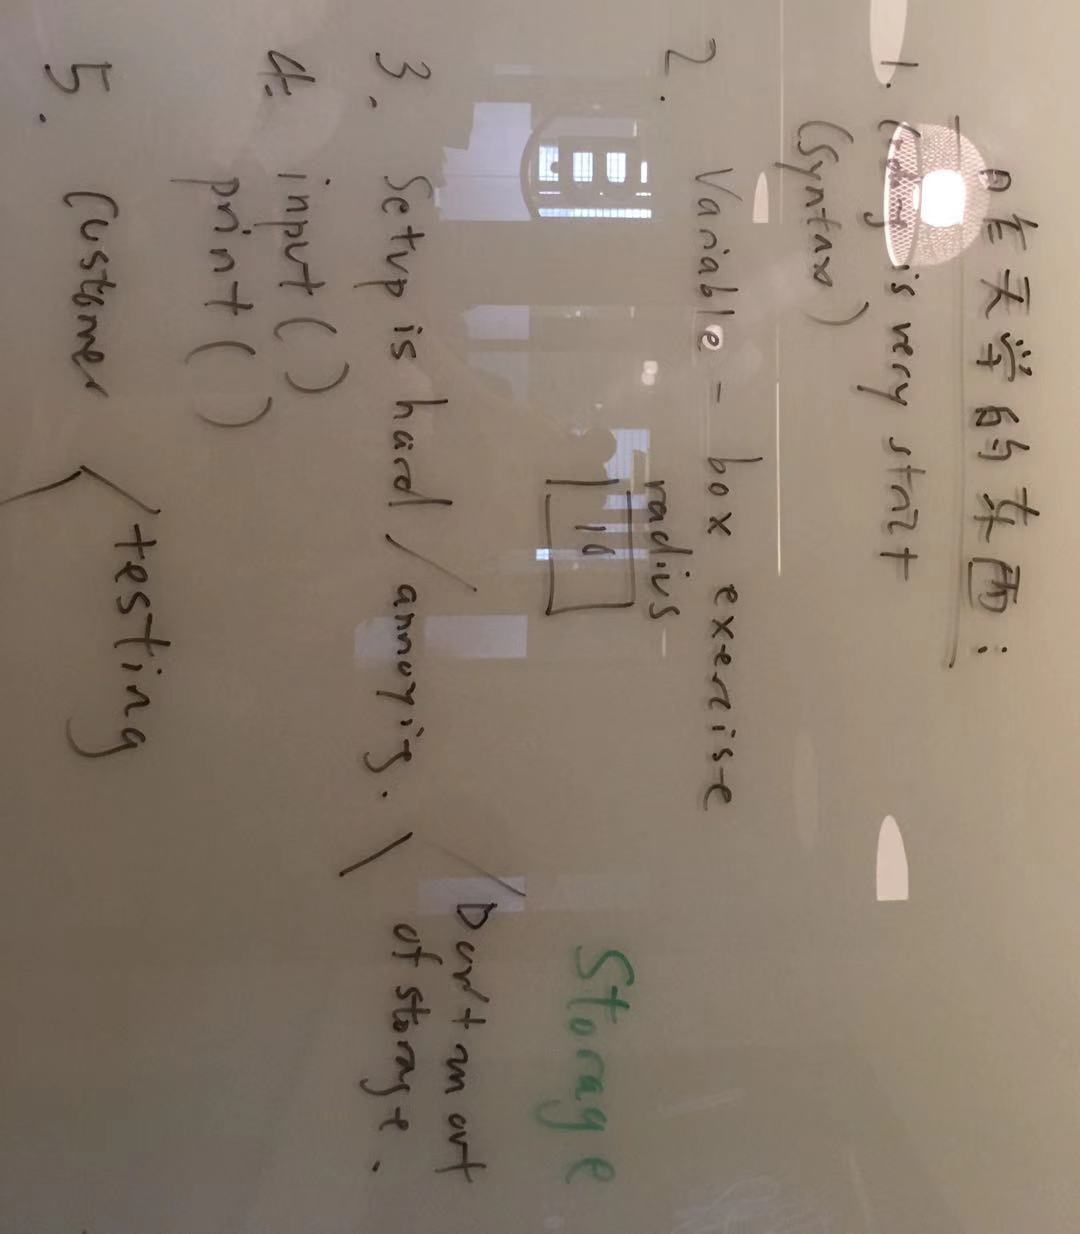 昨天学的东西:
1. Coding is very strict
(syntax)
2. Variable - box exercise
radius
10
Storage
3. Setup is hard / annoying.
Don't run out
of storage.
4. input ( )
print ( )
5. Customer
testing